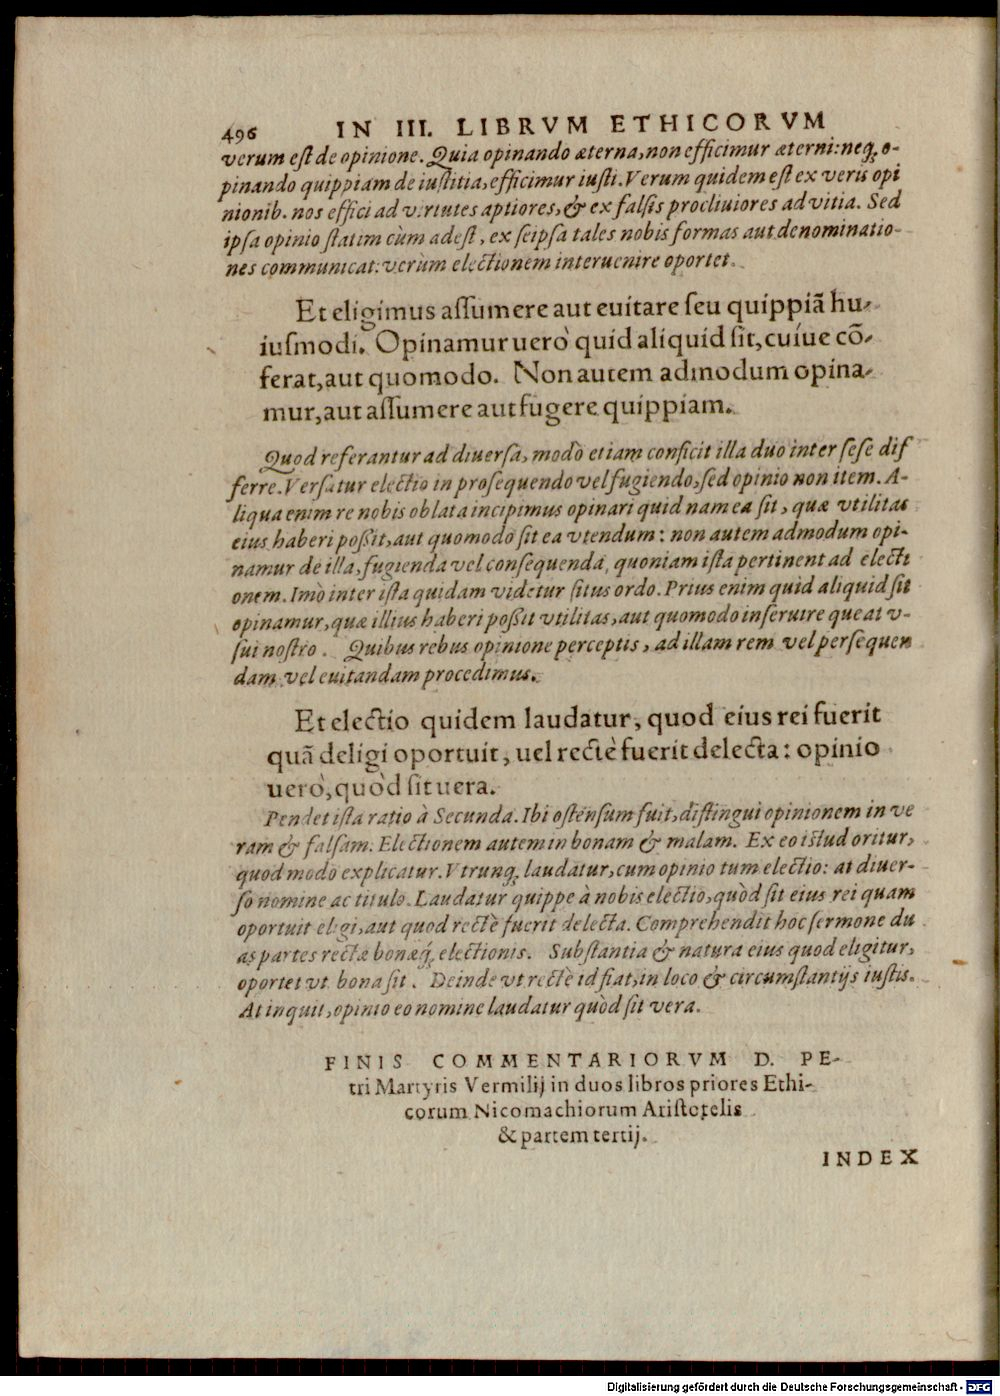 496 IN III. LIBRVM ETHICORVM
verum eſt de opinione. Quia opinando æterna, non efficimur æterni: neq; o-
pinando quippiam de iuſtitia, efficimur iuſti. Verum quidem eſt ex veris opi
nionib. nos effici ad virtutes aptiores, & ex falſis procliuiores ad vitia. Sed
ipſa opinio ſtatim cùm adeſt, ex ſeipſa tales nobis formas aut denominatio-
nes communicat: verùm electionem interuenire oportet.
Et eligimus aſſumere aut euitare ſeu quippiã hu-
iuſmodi. Opinamur uerò quid aliquid ſit, cuiue cõ-
ferat, aut quomodo. Non autem admodum opina-
mur, aut aſſumere aut fugere quippiam.
Quod referantur ad diuerſa, modò etiam conficit illa duo inter ſeſe dif
ferre. Verſatur electio in proſequendo vel fugiendo, ſed opinio non item. A-
liqua enim re nobis oblata incipimus opinari quid nam ea ſit, quæ vtilitas
eius haberi poßit, aut quomodo ſit ea vtendum: non autem admodum opi-
namur de illa, fugienda vel conſequenda, quoniam iſta pertinent ad electi
onem. Imò inter iſta quidam videtur ſitus ordo. Prius enim quid aliquid ſit
opinamur, quæ illius haberi poßit vtilitas, aut quomodo inſeruire queat v-
ſui noſtro. Quibus rebus opinione perceptis, ad illam rem vel perſequen
dam vel euitandam procedimus.
Et electio quidem laudatur, quod eius rei fuerit
quã deligi oportuit, uel rectè fuerit delecta: opinio
uerò, quòd ſit uera.
Pendet iſta ratio à Secunda. Ibi oſtenſum fuit, diſtingui opinionem in ve
ram & falſam. Electionem autem in bonam & malam. Ex eo iſtud oritur,
quod modò explicatur. Vtrunq; laudatur, cum opinio tum electio: at diuer-
ſo nomine ac titulo. Laudatur quippe à nobis electio, quòd ſit eius rei quam
oportuit eligi, aut quod rectè fuerit delecta. Comprehendit hoc ſermone du
as partes rectæ bonæq; electionis. Subſtantia & natura eius quod eligitur,
oportet vt bona ſit. Deinde vt rectè id fiat, in loco & circumſtantijs iuſtis.
At inquit, opinio eo nomine laudatur quòd ſit vera.
FINIS COMMENTARIORVM D. PE-
tri Martyris Vermilij in duos libros priores Ethi-
corum Nicomachiorum Ariſtotelis
& partem tertij.
INDEX
Digitalisierung gefördert durch die Deutsche Forschungsgemeinschaft - DFG